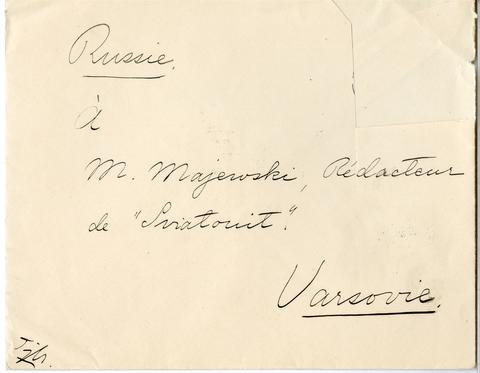 Russie.
à
M. Majewski, Rédacteur
de "Sviatovit".
Varsovie.